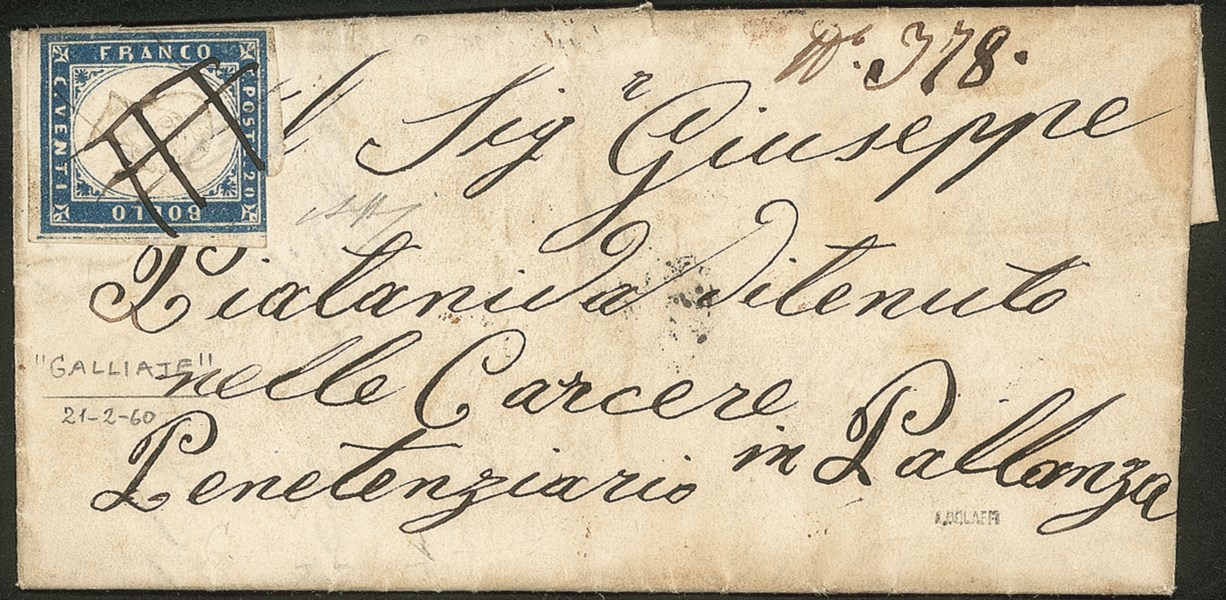 FRANCO
C. VENTI
POST. 20
BOLLO
N.° 378.
Al Sig.r Giuseppe
Piatanida Ditenuto
nelle Carcere
Penetenziario in Pallanza
"GALLIATE"
21-2-60
A. BOLAFFI